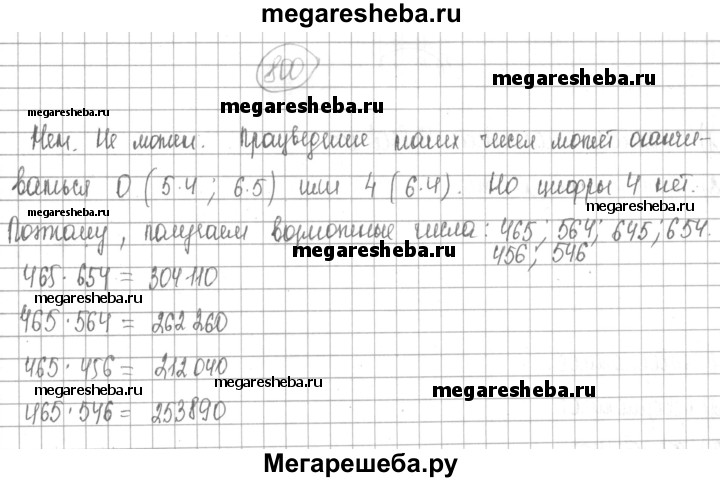 megaresheba.ru
800
megaresheba.ru
megaresheba.ru
megaresheba.ru
Нет. Не может. Произведение таких чисел может оканчи-
ваться 0 (5·4; 6·5) или 4 (6·4). Но цифры 4 нет.
megaresheba.ru
megaresheba.ru
Поэтому, получаем возможные числа: 465; 564; 645; 654.
456; 546
megaresheba.ru
465·654 = 304110
megaresheba.ru
465·564 = 262 260
465·456 = 212040
megaresheba.ru
megaresheba.ru
megaresheba.ru
465·546 = 253890
Мегарешеба.ру